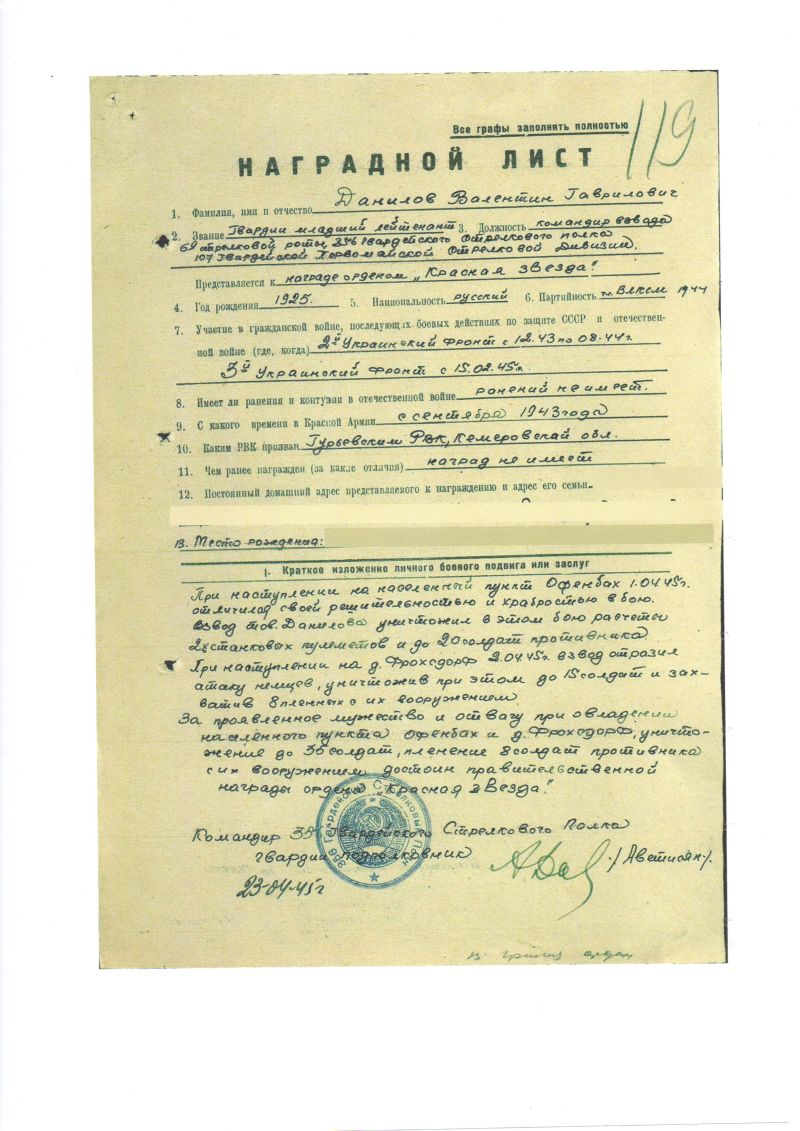 Все графы заполнять полностью
119
НАГРАДНОЙ ЛИСТ
1. Фамилия, имя и отчество Данилов Валентин Гаврилович
2. Звание Гвардии младший лейтенант 3. Должность командир взвода
6й стрелковой роты, 356 гвардейского Стрелкового полка
107 Гвардейской Первомайской Стрелковой Дивизии.
Представляется к награде орденом „Красная звезда".
4. Год рождения 1925. 5. Национальность русский 6. Партийность чл. Влксм 1944
7. Участие в гражданской войне, последующих боевых действиях по защите СССР и отечествен-
ной войне (где, когда) 2й Украинский Фронт с 12.43 по 08.44г.
3й Украинский Фронт с 15.02.45г.
8. Имеет ли ранения и контузии в отечественной войне ранений не имеет.
9. С какого времени в Красной Армии с сентября 1943 года
10. Каким РВК призван Гурьевским РВК, Кемеровской обл.
11. Чем ранее награжден (за какие отличия) наград не имеет
12. Постоянный домашний адрес представляемого к награждению и адрес его семьи
13. Место рождения:
I. Краткое изложение личного боевого подвига или заслуг
При наступлении на населенный пункт Офенбах 1.04.45г.
отличился своей решительностью и храбростью в бою.
Взвод тов. Данилова уничтожил в этом бою расчеты
2х станковых пулеметов и до 20 солдат противника
При наступлении на д. Фроходорф 2.04.45г. взвод отразил
атаку немцев, уничтожив при этом до 15 солдат и зах-
ватив 8 пленных с их вооружением.
За проявленное мужество и отвагу при овладении
населённого пункта Офенбах и д. Фроходорф, уничто-
жение до 35 солдат, пленение 8 солдат противника
с их вооружением достоин правительственной
награды ордена „Красная звезда".
Командир 356 Гвардейского Стрелкового Полка
гвардии подполковник /Аветисян/.
23-04-45г
356 Гвардейский Стрелковый Полк